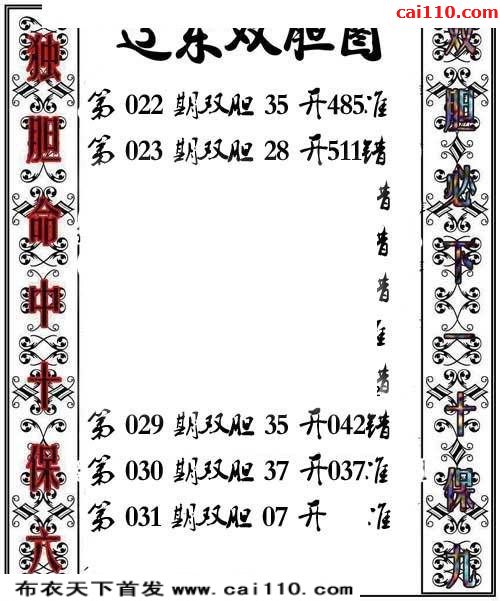 cai110.com
辽东双胆图
独胆命中十保六
双胆必下一十保九
第 022 期双胆 35 开485准
第 023 期双胆 28 开511错
错
错
错
准
错
第 029 期双胆 35 开042错
第 030 期双胆 37 开037准
第 031 期双胆 07 开 准
布衣天下首发 www.cai110.com